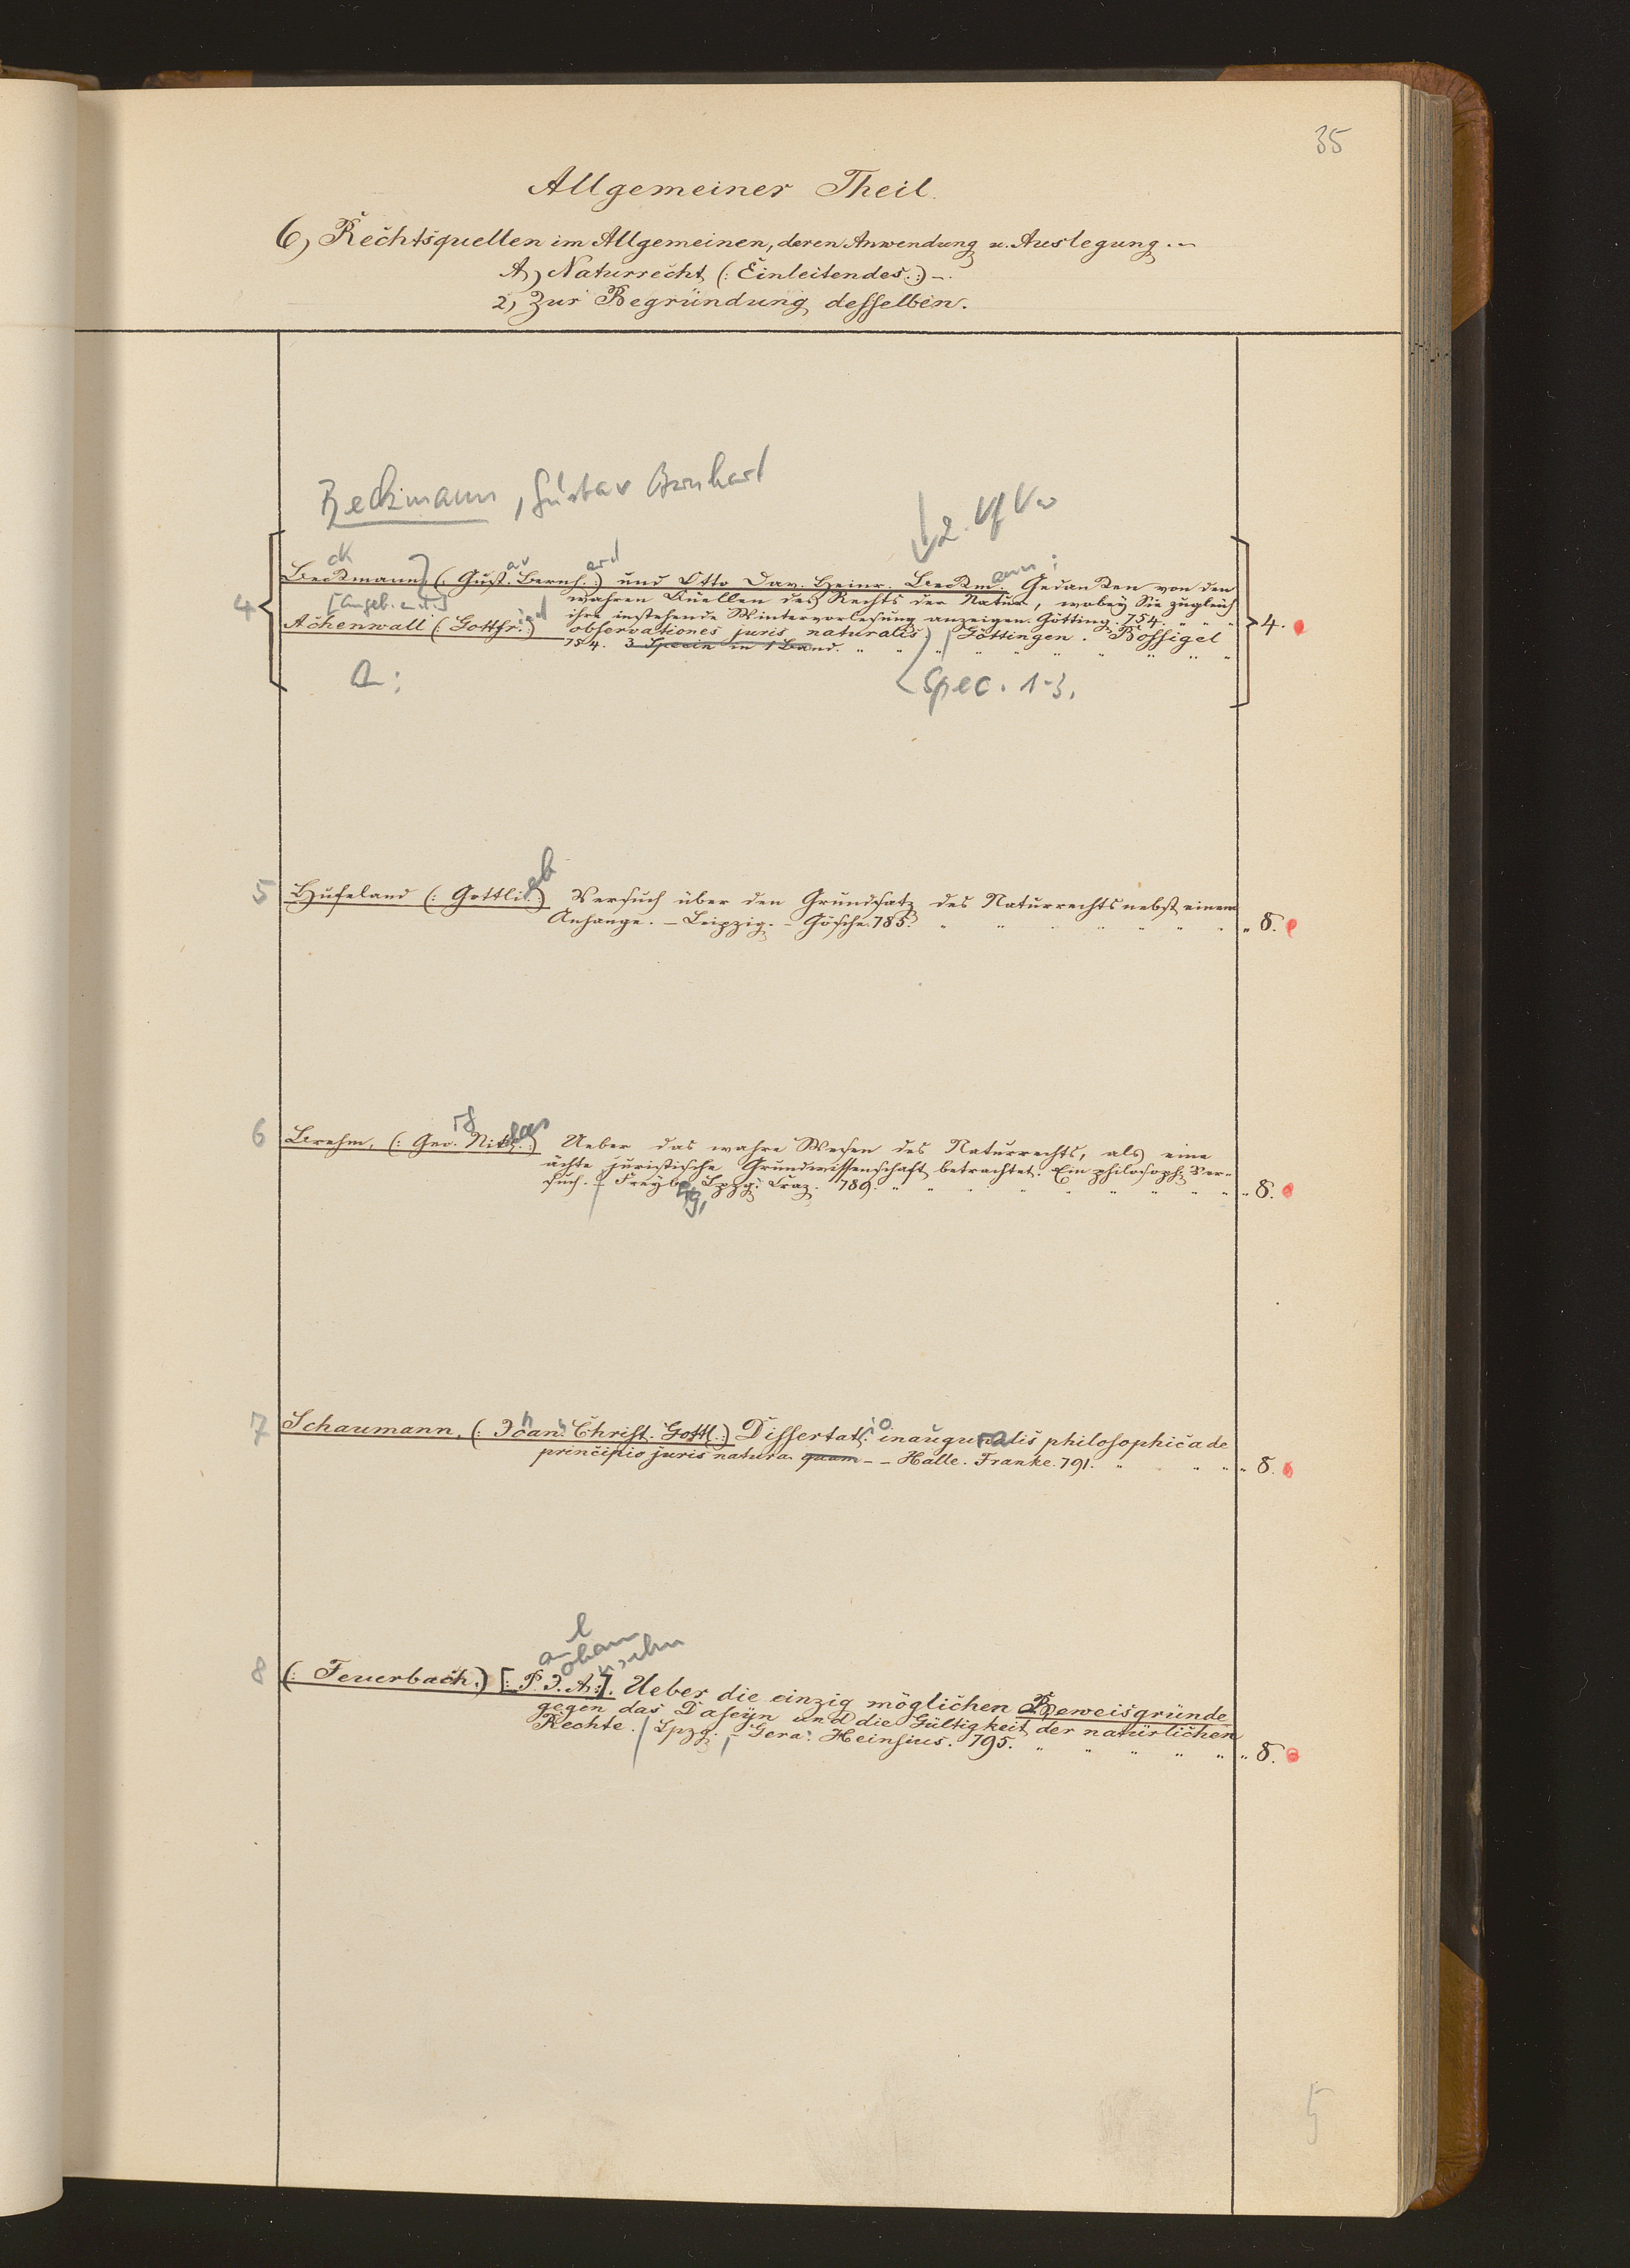 35
Allgemeiner Theil.
6, Rechtsquellen im Allgemeinen, deren Anwendung u. Auslegung.
A, Naturrecht (: Einleitendes :)
2, Zur Begründung desselben.
Beckmann, Gustav Bernhard
2. Vf
4 Beckmann, (: Gustav. Bernhard. :) und Otto Dav. Heinr. Beckmann: Gedanken von den
wahren Quellen des Rechts der Natur, wobey Sie zugleich
[Angeb. ihre instehende Wintervorlesung anzeigen. Götting. 754. 4.
Achenwall (: Gottfried :) observationes juris naturalis. Göttingen. Bossigel
754. 3 Specin in 1 Band.
Spec. 1-3.
5 Hufeland (: Gottlieb :) Versuch über den Grundsatz des Naturrechts nebst einem
Anhange. – Leipzig. – Göschen. 785. 8.
6 Brehm, (: Geo. Niklas :) Ueber das wahre Wesen des Naturrechts, als eine
ächte juristische Grundwissenschaft betrachtet. Ein philosoph. Ver-
such. – Freyb. Lpzg. Craz. 789. 8.
7 Schaumann, (: Johan. Christ. Gottl. :) Dissertatio inauguralis philosophica de
principio juris natura quam – – Halle. Franke. 791. 8.
8 (: Feuerbach.) [: P. J. A. :]. Ueber die einzig möglichen Beweisgründe
gegen das Daseyn und die Gültigkeit der natürlichen
Rechte. Lpzg. – Gera. Heinsius. 795. 8.
5